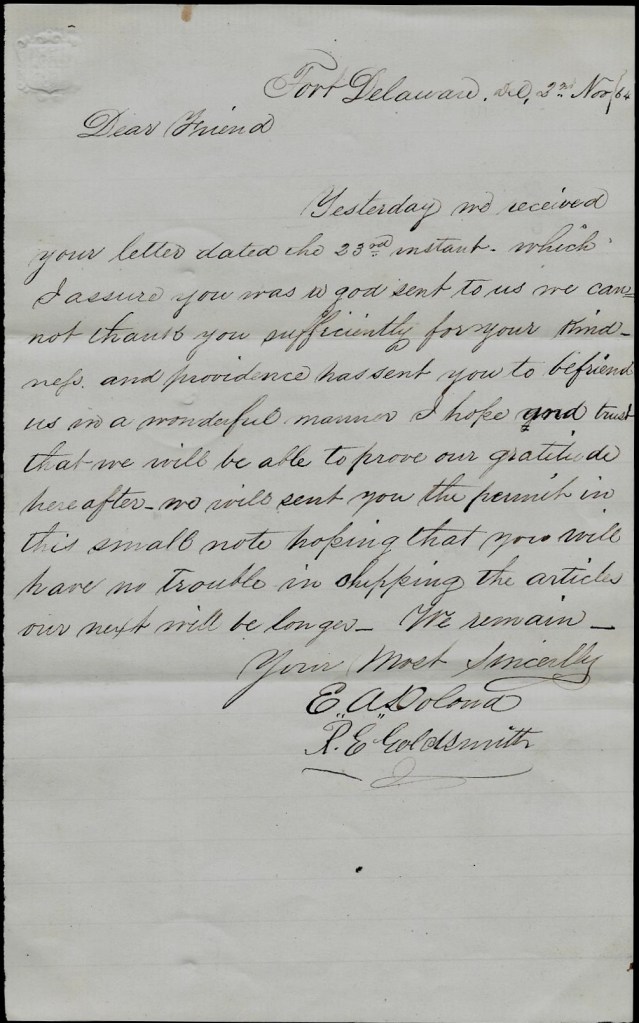 Fort Delaware. Del, Nov/64
Dear Friend
Yesterday we received
your letter dated the 23rd instant. which
I assure you was a god sent to us we can=
not thank you sufficiently for your Kind_
ness. and providence has sent you to befriend
us in a wonderful manner I hope and trust
that we will be able to prove our gratitude
hereafter_ we will sent you the permit in
this small note hoping that you will
have no trouble in shipping the articles
our next will be longer_ We remain_
Your Most Sincerlly
E. A.
R. "E" Goldsmith